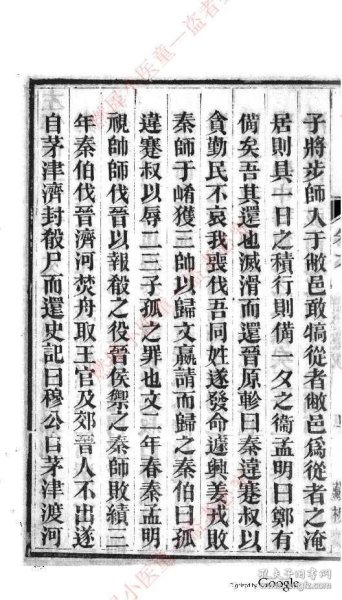 子將步師入于敝邑敢犒從者敝邑爲從者之淹
居則具一日之積行則備一夕之衞孟明曰鄭有
備矣吾其還也滅滑而還晉原軫曰秦違蹇叔以
貪勤民不哀我喪伐吾同姓遂發命遽興姜戎敗
秦師于崤獲三帥以歸文嬴請而歸之秦伯曰孤
違蹇叔以辱二三子孤之罪也文二年春秦孟明
視帥師伐晉以報殽之役晉侯禦之秦師敗績三
年秦伯伐晉濟河焚舟取王官及郊晉人不出遂
自茅津濟封殽尸而還史記曰穆公自茅津渡河
Digitized by Google